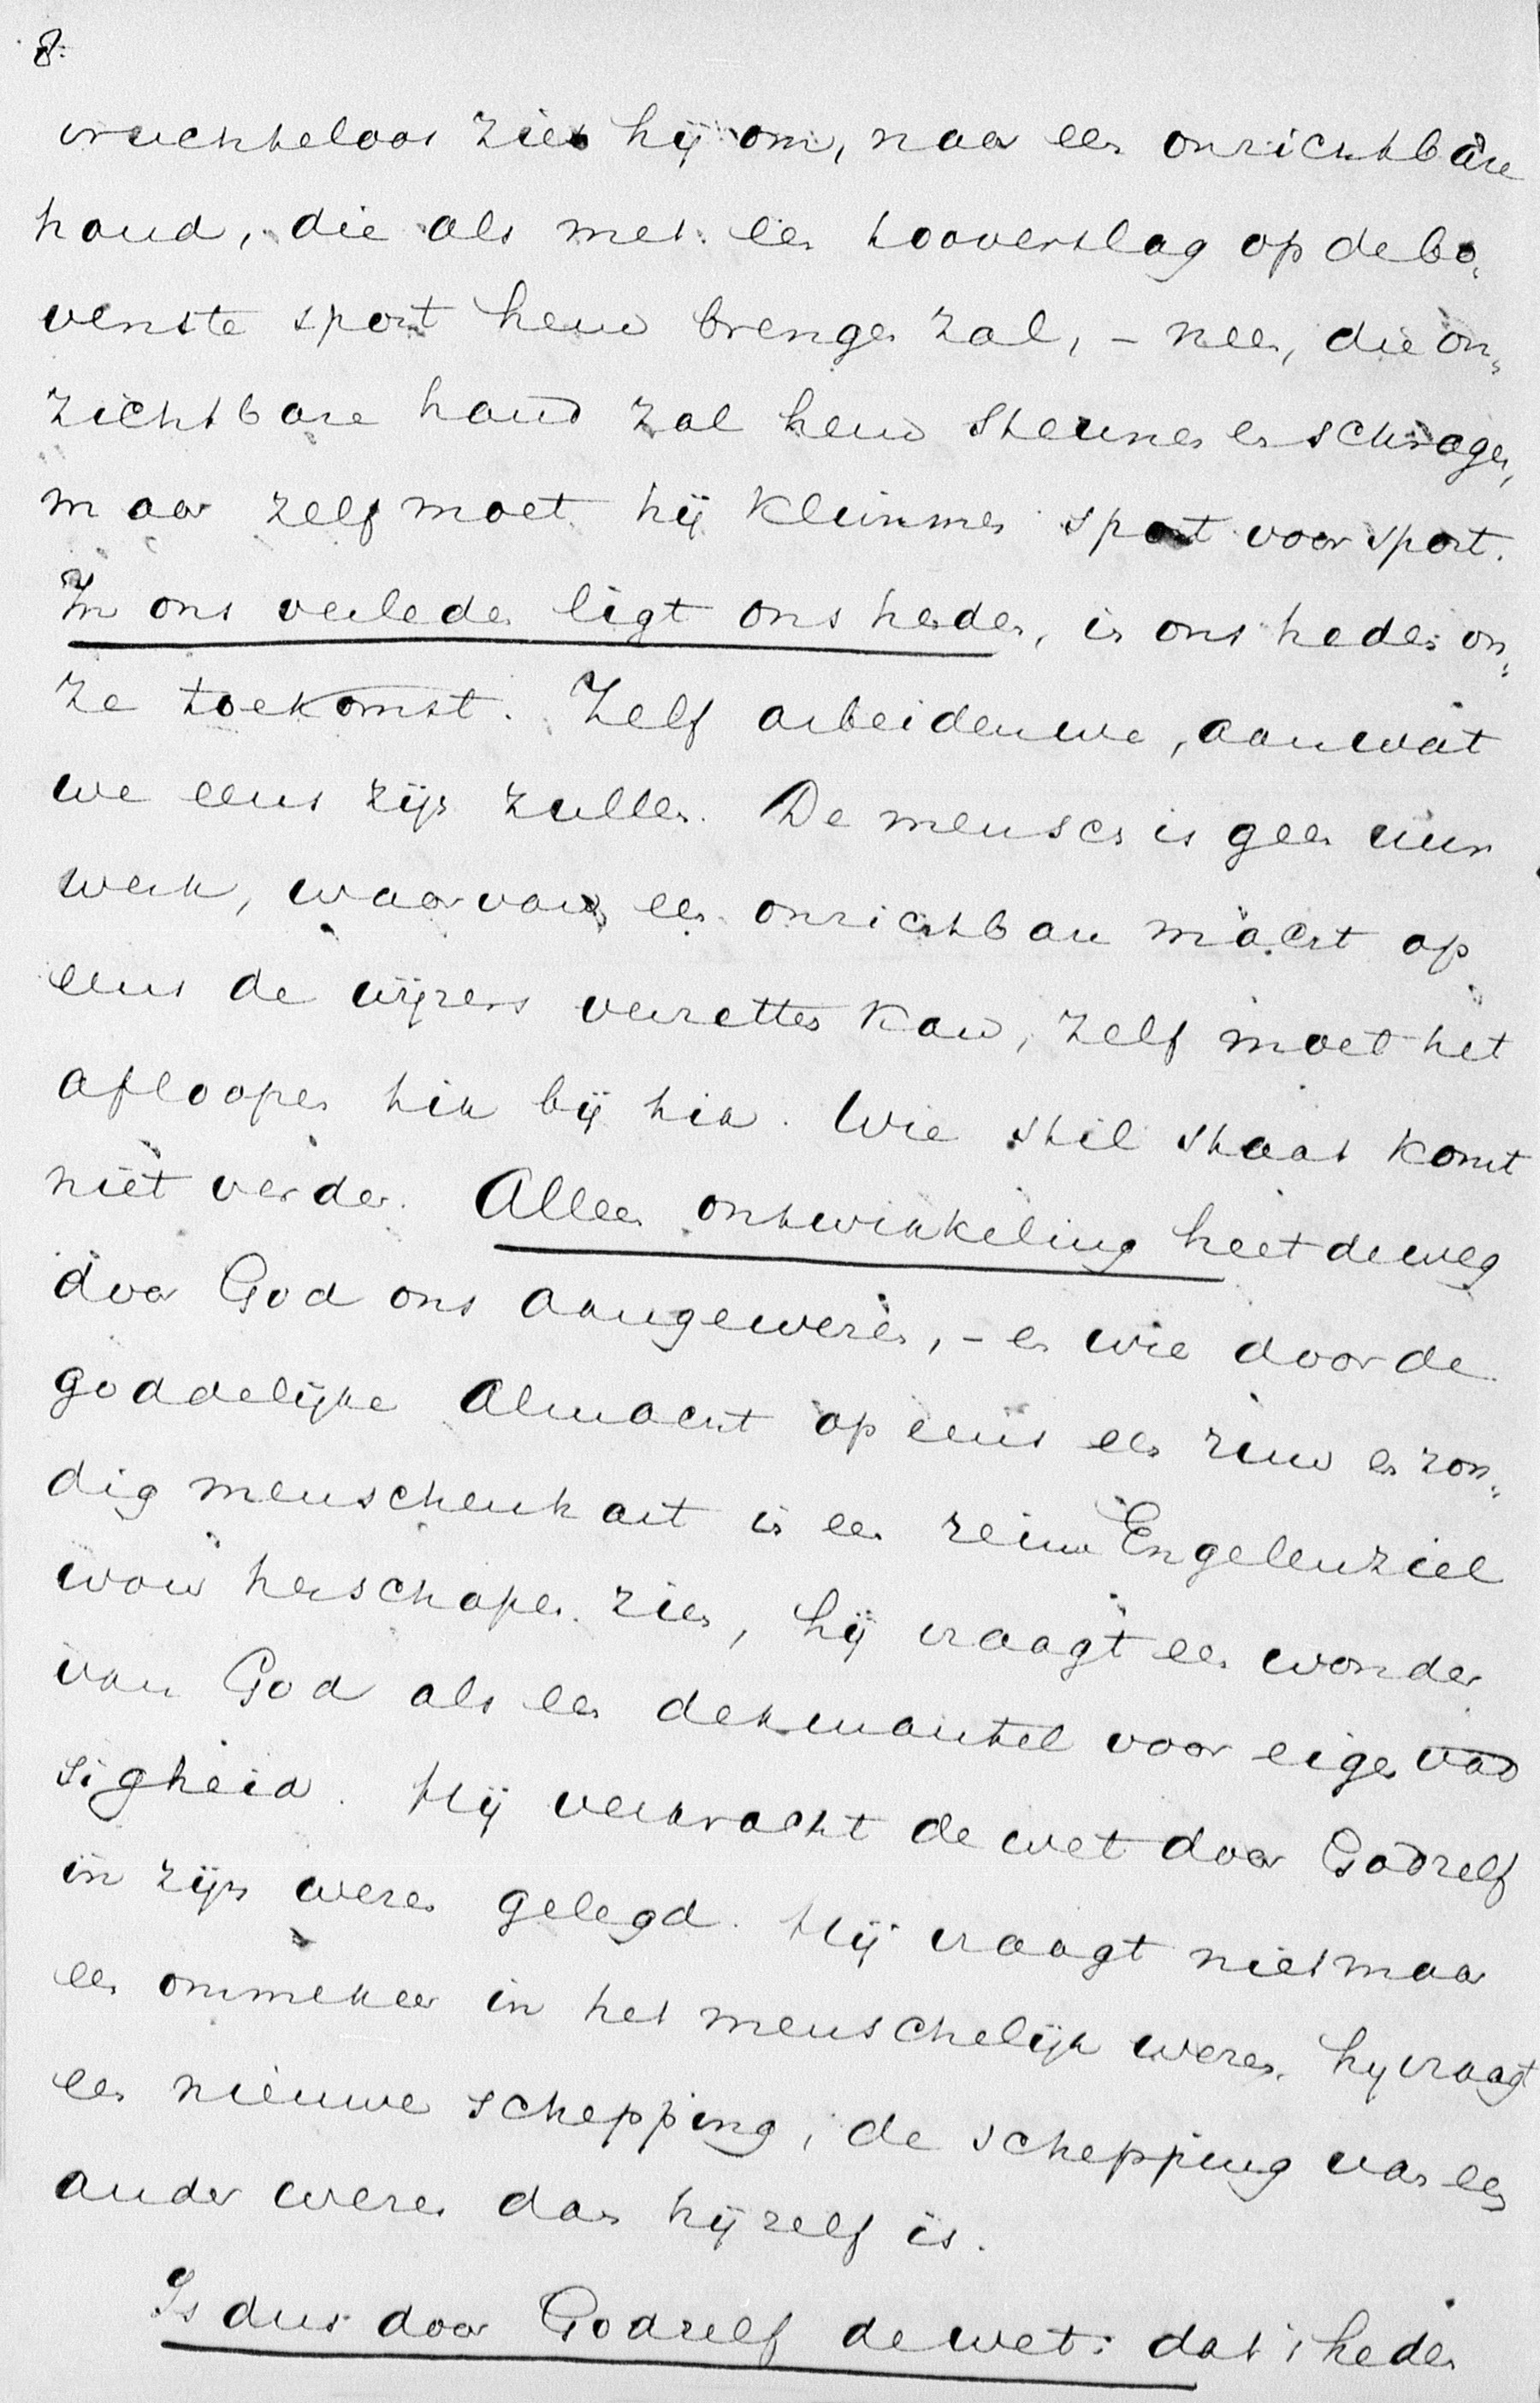 8.
vruchteloos ziet hij om, naar een onzichtbare
hand, die als met een tooverslag op de bo„
venste sport hem brengen zal, – neen, die on„
zichtbare hand zal hem steunen en schragen,
maar zelf moet hij klimmen sport voor sport.
In ons verleden ligt ons heden, in ons heden on„
ze toekomst. Zelf arbeiden we, aan wat
we eens zijn zullen. De mensch is geen uur
werk, waarvan een onzichtbare macht op
eens de wijzers verzetten kan, zelf moet het
afloopen tik bij tik. Wie stil staat komt
niet verder. Alleen ontwikkeling heet de weg
door God ons aangewezen, – en wie door de
goddelijke Almacht op eens een ruw en zon„
dig menschenhart in een reine Engelenziel
wou herschapen zien, hij vraagt een wonder
van God als een dekmantel voor eigen vad
sigheid. Hij verkracht de wet door God zelf
in zijn wezen gelegd. Hij vraagt niet maar
een ommekeer in het menschelijk wezen, hij vraagt
een nieuwe schepping, de schepping van een
ander wezen dan hij zelf is.
Is dus door God zelf de wet: dat 't heden